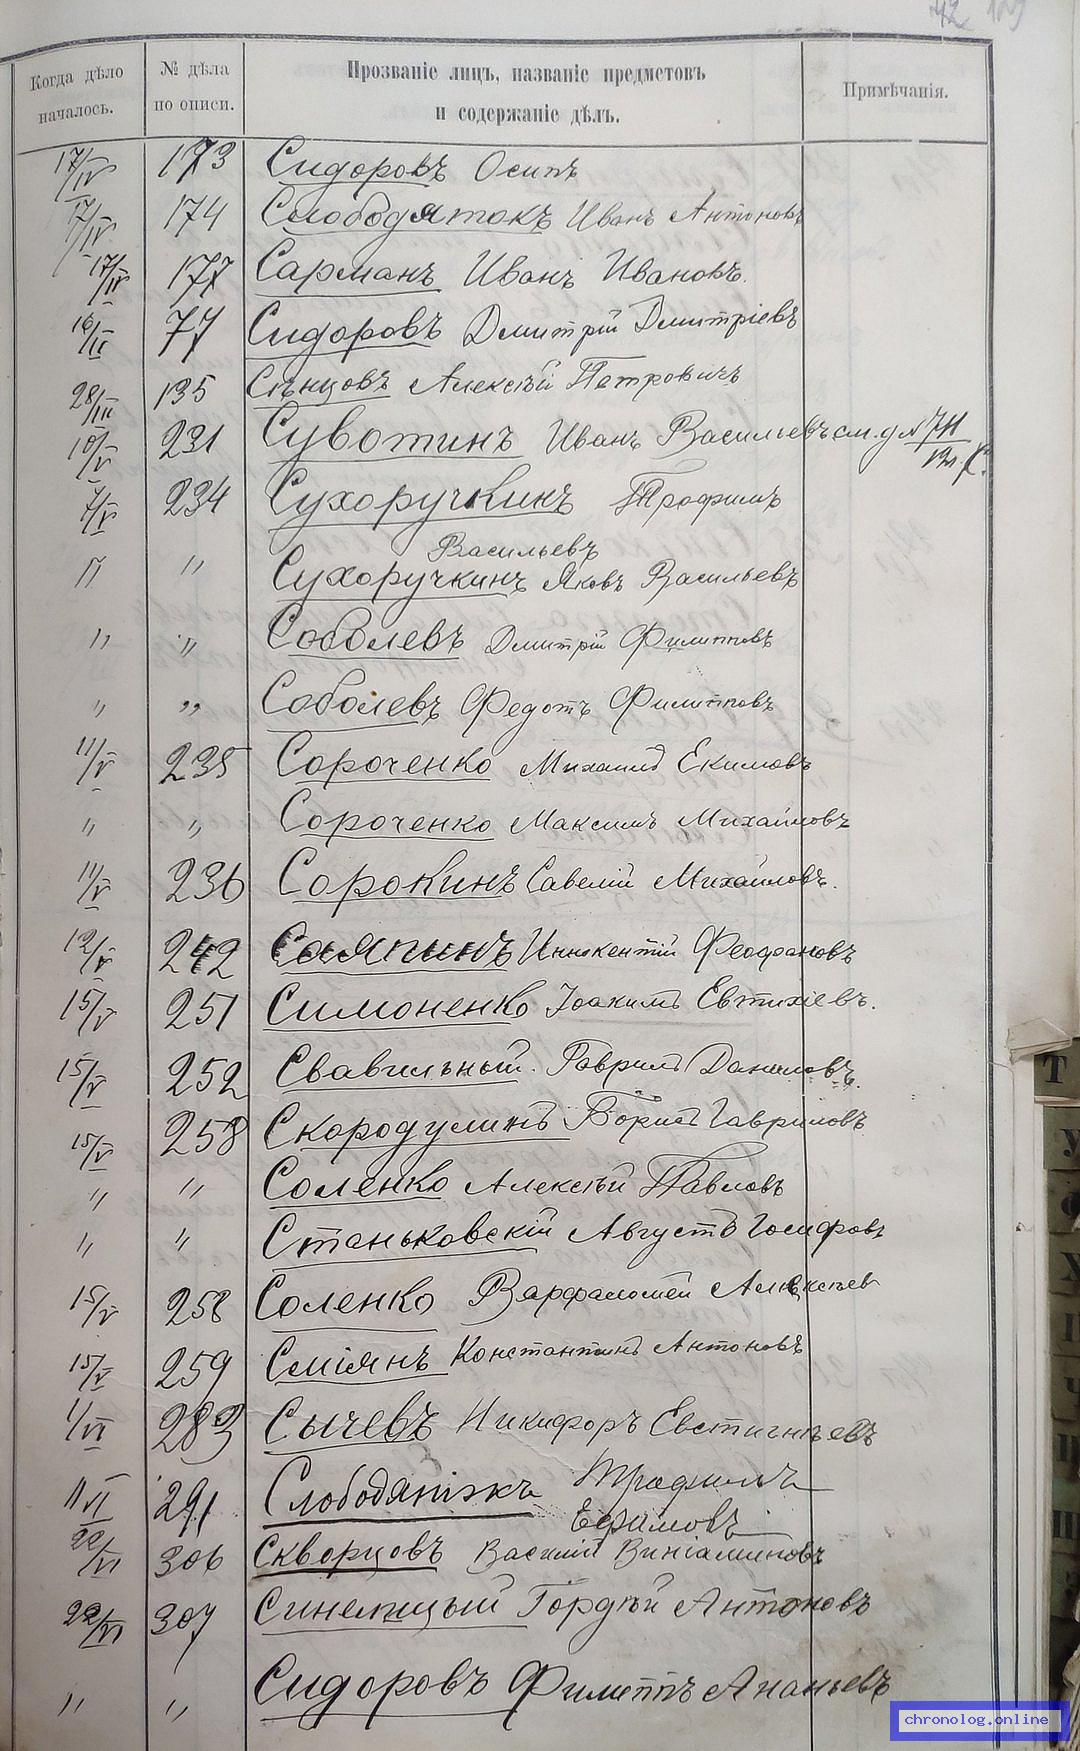 42 129
Когда дѣло началось. № дѣла по описи. Прозваніе лицъ, названіе предметовъ и содержаніе дѣлъ. Примѣчанія.
17/IV 173 Сидоровъ Осипъ
17/IV 174 Слободятокъ Иванъ Антоновъ
17/IV 177 Сарманъ Иванъ Ивановъ.
16/II 77 Сидоровъ Дмитрій Дмитріевъ
28/III 135 Сѣнцовъ Алексѣй Петровичъ
10/V 231 Сувотинъ Иванъ Васильевъ см. д №
7/V 234 Сухоручкинъ Трофимъ
Васильевъ
" " Сухоручкинъ Яковъ Васильевъ
" " Соболевъ Дмитрій Филипповъ
" " Соболевъ Федотъ Филипповъ
11/V 235 Сороченко Михаилъ Екимовъ
" " Сороченко Максимъ Михайловъ
11/V 236 Сорокинъ Савелій Михайловъ.
12/V 242 Саяпинъ Иннокентій Феофановъ
15/V 251 Симоненко Іоакимъ Евтихіевъ.
15/V 252 Свавильный. Гаврилъ Даниловъ.
15/V 258 Скородулинъ Борисъ Гавриловъ
" " Соленко Алексѣй Павловъ
" " Станьковскій Августъ Іосифовъ
15/V 258 Соленко Варфаломей Алексѣев
15/V 259 Сміянъ Константинъ Антоновъ
1/VI 283 Сычевъ Никифоръ Евстигнѣевъ
11/VI 291 Слободянікъ Трафимъ
Ефимовъ
22/VI 306 Скворцовъ Василій Виніаминовъ
22/VI 307 Синельцый Гордѣй Антоновъ
" " Сидоровъ Филиппъ Ананьевъ
Т
У
Х
Ч
chronolog.online